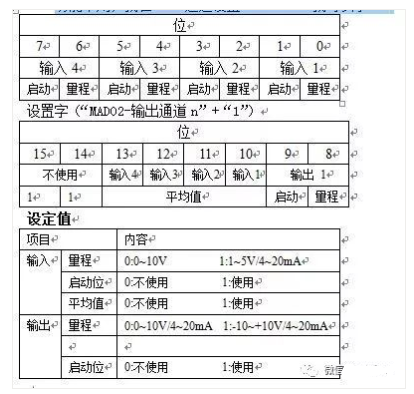 位
7 6 5 4 3 2 1 0
输入 4 输入 3 输入 2 输入 1
启动 量程 启动 量程 启动 量程 启动 量程
设置字（“MAD02-输出通道 n”+“1”）
位
15 14 13 12 11 10 9 8
不使用 输入4 输入3 输入2 输入1 输出 1
1 1 平均值 启动 量程
设定值
项目 内容
输入 量程 0:0~10V 1:1~5V/4~20mA
启动位 0:不使用 1:使用
平均值 0:不使用 1:使用
输出 量程 0:0~10V/4~20mA 1:-10~+10V/4~20mA
启动位 0:不使用 1:使用